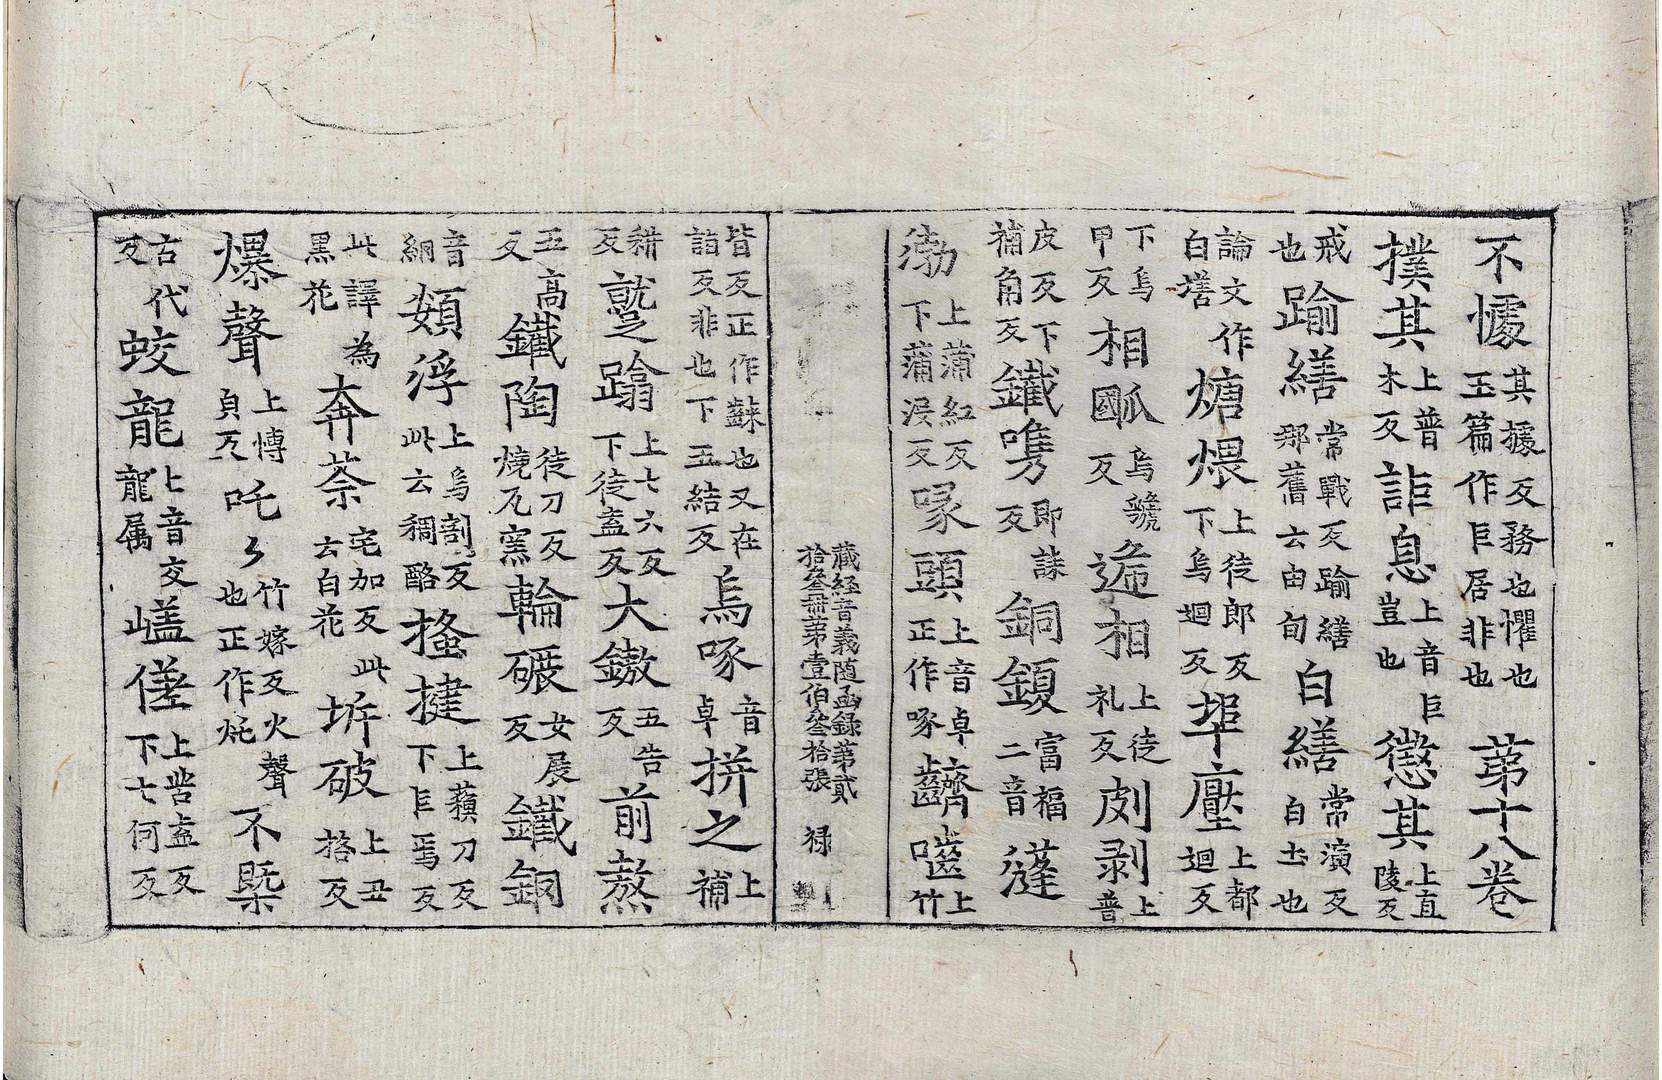 不懅其據反務也懼也玉篇作巨居非也第十八卷
撲其上普木反詎息上音巨豈也懲其上直陵反
戒也踰繕常戰反踰繕那舊云由旬白繕常演反白土也
論文作白墡煻煨上徒郎反下烏迴反埠塺上都迴反
下烏甲反相烏虢反遞相上徒礼反皮剥上普
皮反下補角反鐵㗱即誄反銅鍑富福二音蓬
勃上蒲紅反下蒲沒反啄頭上音卓正作啄齌上竹
藏経音義随函録第貳拾叄册第壹伯叄拾張 禄
皆反正作也又在詣反非也下五結反烏啄音卓拼之上補
耕反蹵蹹上七六反下徒盍反大鏉五告反前熬
五高反鐵陶徒刀反燒瓦窯輪碾女展反鐵銅
音綱頞浮上烏割反此云稠酪搔揵上蘓刀反下巨焉反
此譯為黑花奔荼宅加反此云白花坼破上丑格反
爆聲上愽皃反吒々竹嫁反火聲也正作不槩
古代反蛟龍上音交龍属傞上苦盍反下七何反